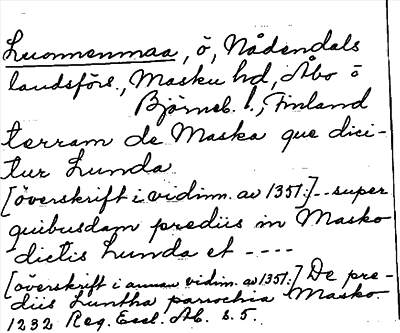 Luonnenmaa, ö, Nådendals
landsförs., Masku hd, Åbo o
Björneb. l., Finland
terram de Maska que dici-
tur Lunda
[överskrift i vidim. av 1351:] -- super
quibusdam prediis in Masko
dictis Lunda et ----
[överskrift i annan vidim. av 1351:] De pre-
diis Luntha parochia Masko.
1232 Reg. Eccl. Ab. s. 5.